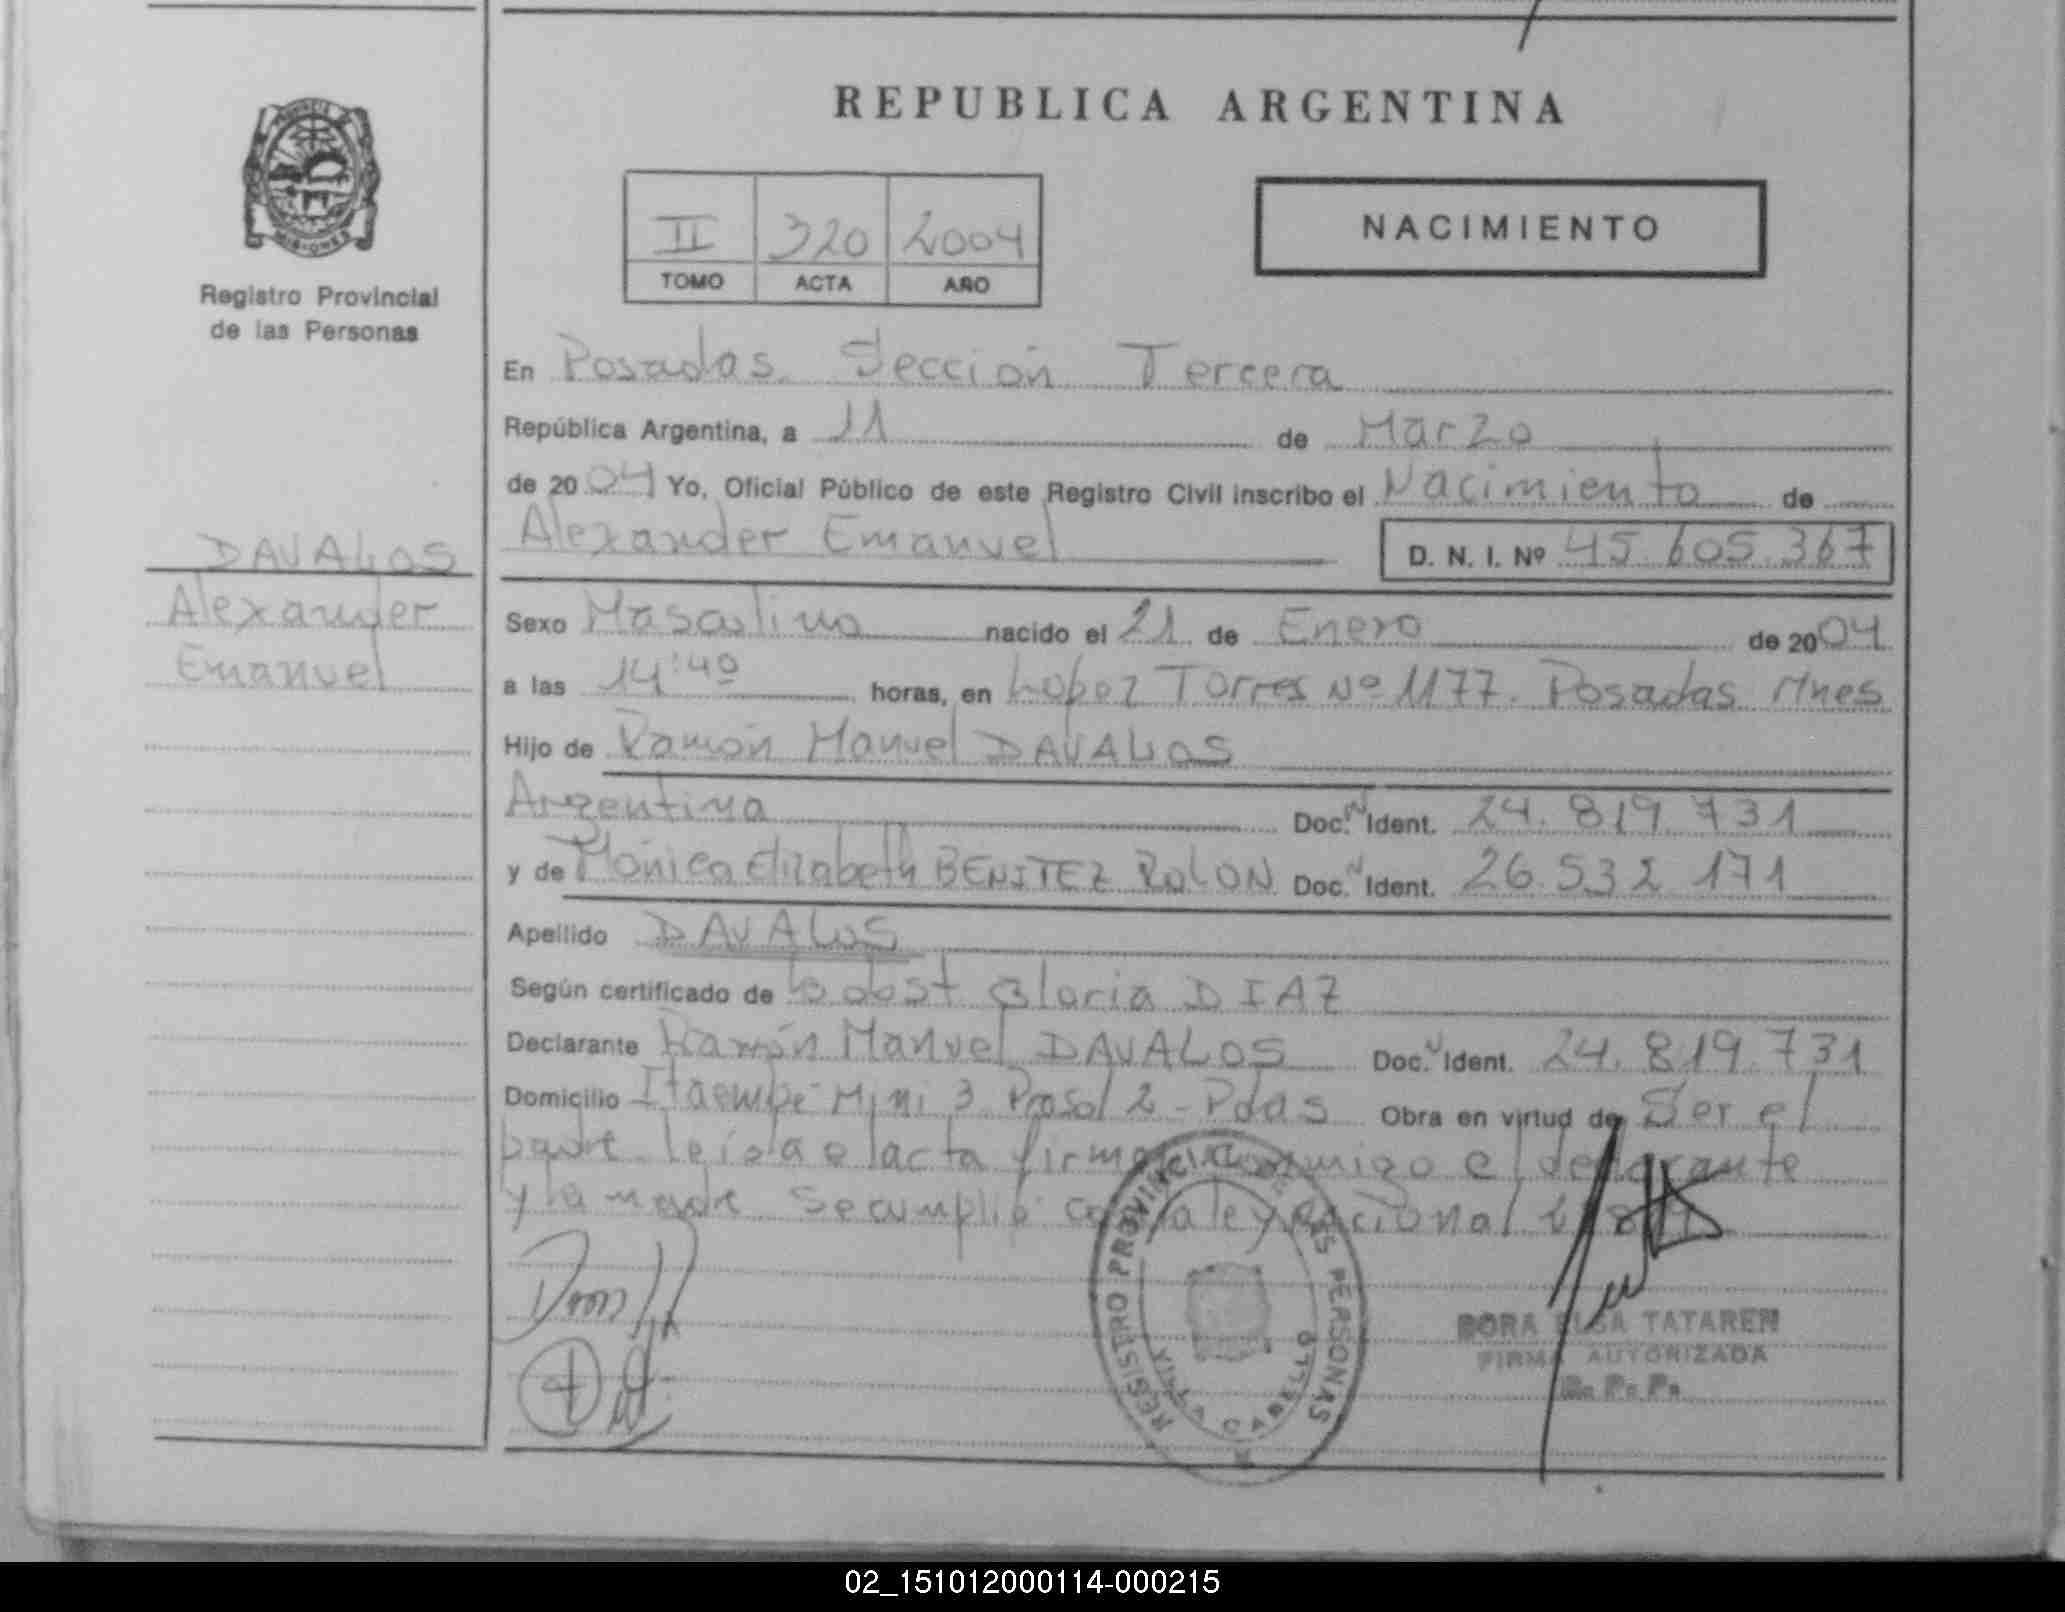 REPUBLICA ARGENTINA
PROVINCIA
MISIONES
Registro Provincial
de las Personas
II 320 2004
TOMO ACTA AÑO
NACIMIENTO
En Posadas Sección Tercera
República Argentina, a 11 de Marzo
de 2004 Yo, Oficial Público de este Registro Civil inscribo el Nacimiento de
Alexander Emanuel D. N. I. Nº 45.605.367
DAVALOS
Alexander
Emanuel
Sexo Masculino nacido el 21 de Enero de 2004
a las 14:40 horas, en Lopez Torres Nº 1177. Posadas Mnes
Hijo de Ramón Manuel DAVALOS
Argentina Doc. N Ident. 24.819.731
y de Mónica Elizabeth BENITEZ ROLON Doc. N Ident. 26.532.171
Apellido DAVALOS
Según certificado de Gloria DIAZ
Declarante Ramón Manuel DAVALOS Doc. N Ident. 24.819.731
Domicilio Itaembé Mini 3 Prosol 2 - Pdas Obra en virtud de Ser el
padre leída el acta firma conmigo el declarante
y la madre Se cumplió con la ley nacional
REGISTRO PROVINCIAL DE LAS PERSONAS
VILLA CABELLO
DORA ELSA TATAREN
FIRMA AUTORIZADA
R. P. P.
02_151012000114-000215